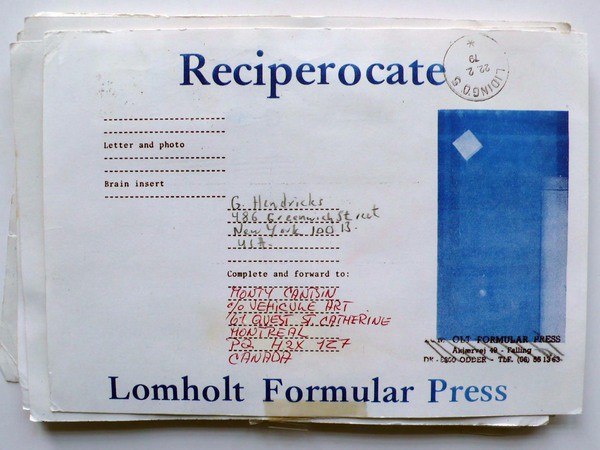 Reciperocate
LIDINGÖ 5
22 2
79
Letter and photo
Brain insert
G. Hendricks
486 Greenwich Street
New York 10013.
USA.
Complete and forward to:
MONTY CANTSIN
c/o VEHICULE ART
61 OUEST ST. CATHERINE
MONTREAL
PQ H2X 1Z7
CANADA
FORMULAR PRESS
49 - Falling
ODDER - TLF. (06) 55 13 63
Lomholt Formular Press